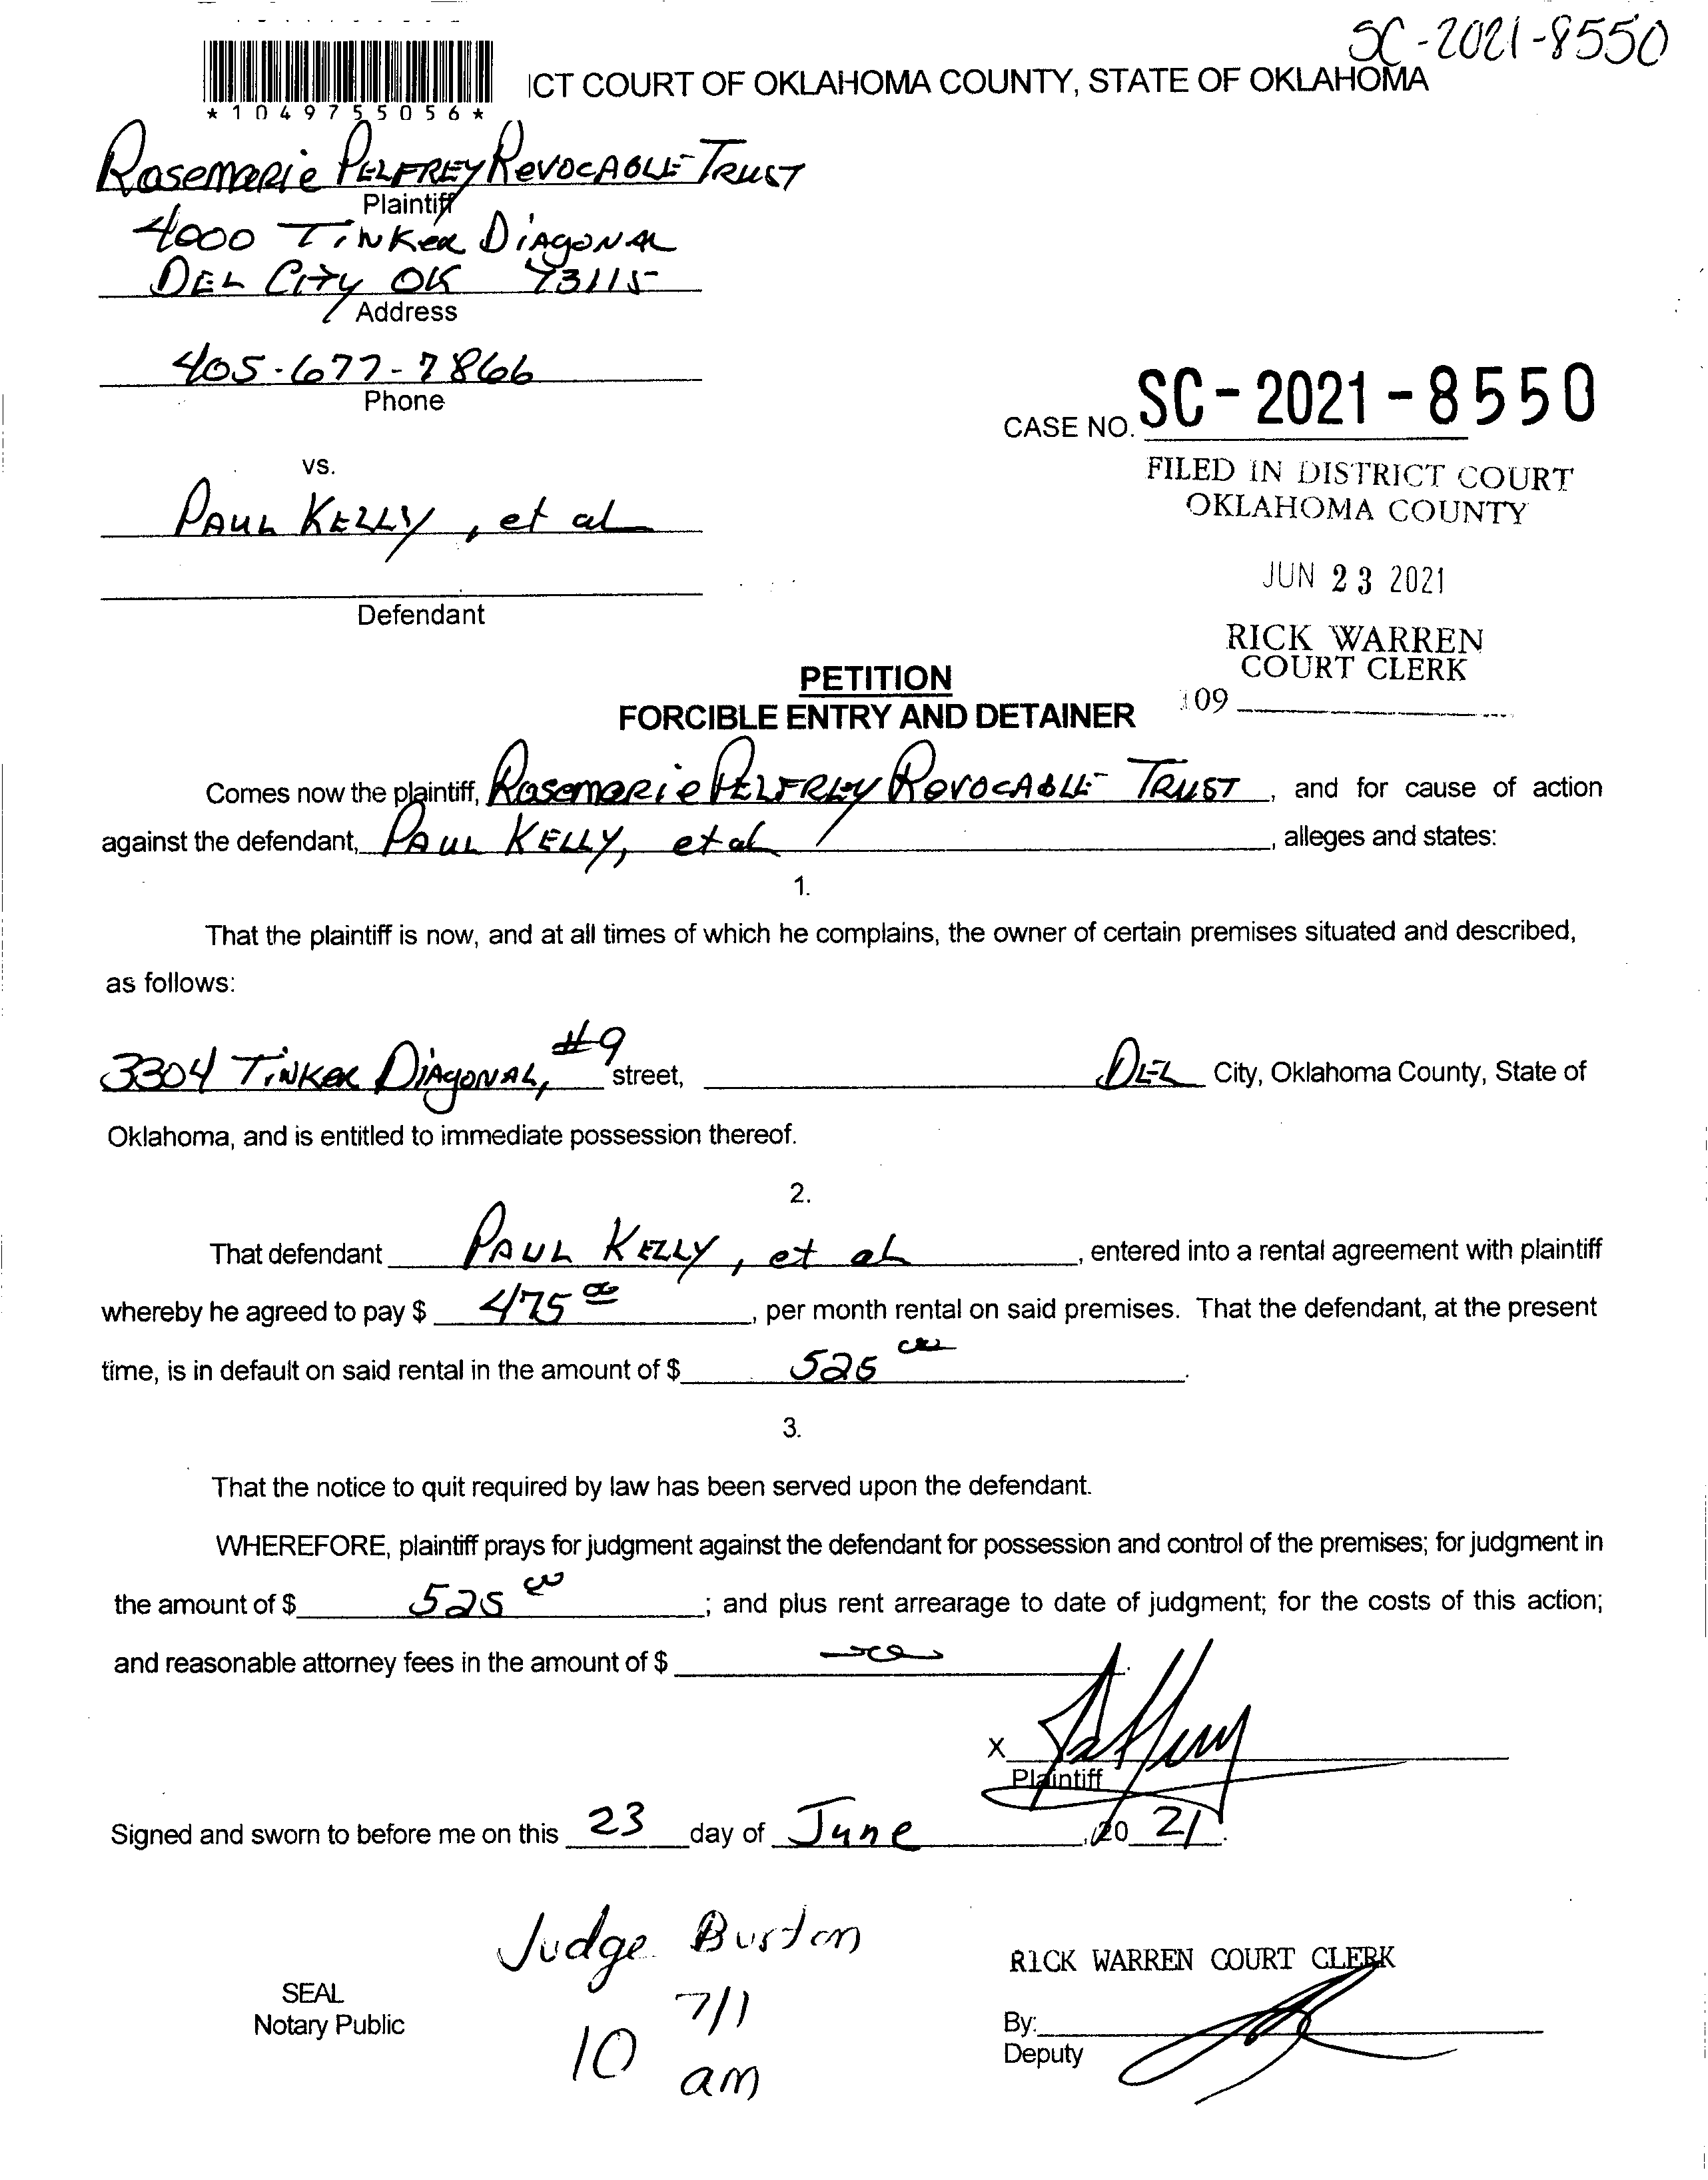 SC-2021-8550
ICT COURT OF OKLAHOMA COUNTY, STATE OF OKLAHOMA
*1049755056*
Rosemarie Pelfrey Revocable Trust
Plaintiff
4000 Tinker Diagonal
Del City OK 73115
Address
405-677-7866
Phone
CASE NO. SC-2021-8550
FILED IN DISTRICT COURT
OKLAHOMA COUNTY
vs.
Paul Kelly, et al
JUN 23 2021
Defendant
RICK WARREN
COURT CLERK
109
PETITION
FORCIBLE ENTRY AND DETAINER
Comes now the plaintiff, Rosemarie Pelfrey Revocable Trust, and for cause of action
against the defendant, Paul Kelly, et al, alleges and states:
1.
That the plaintiff is now, and at all times of which he complains, the owner of certain premises situated and described,
as follows:
3304 Tinker Diagonal, #9 street, Del City, Oklahoma County, State of
Oklahoma, and is entitled to immediate possession thereof.
2.
That defendant Paul Kelly, et al, entered into a rental agreement with plaintiff
whereby he agreed to pay $ 475 00, per month rental on said premises. That the defendant, at the present
time, is in default on said rental in the amount of $ 525 00.
3.
That the notice to quit required by law has been served upon the defendant.
WHEREFORE, plaintiff prays for judgment against the defendant for possession and control of the premises; for judgment in
the amount of $ 525 00; and plus rent arrearage to date of judgment; for the costs of this action;
and reasonable attorney fees in the amount of $
X
Plaintiff
Signed and sworn to before me on this 23 day of June, 20 21.
Judge Burton
7/1
10 am
SEAL
Notary Public
RICK WARREN COURT CLERK
By:
Deputy